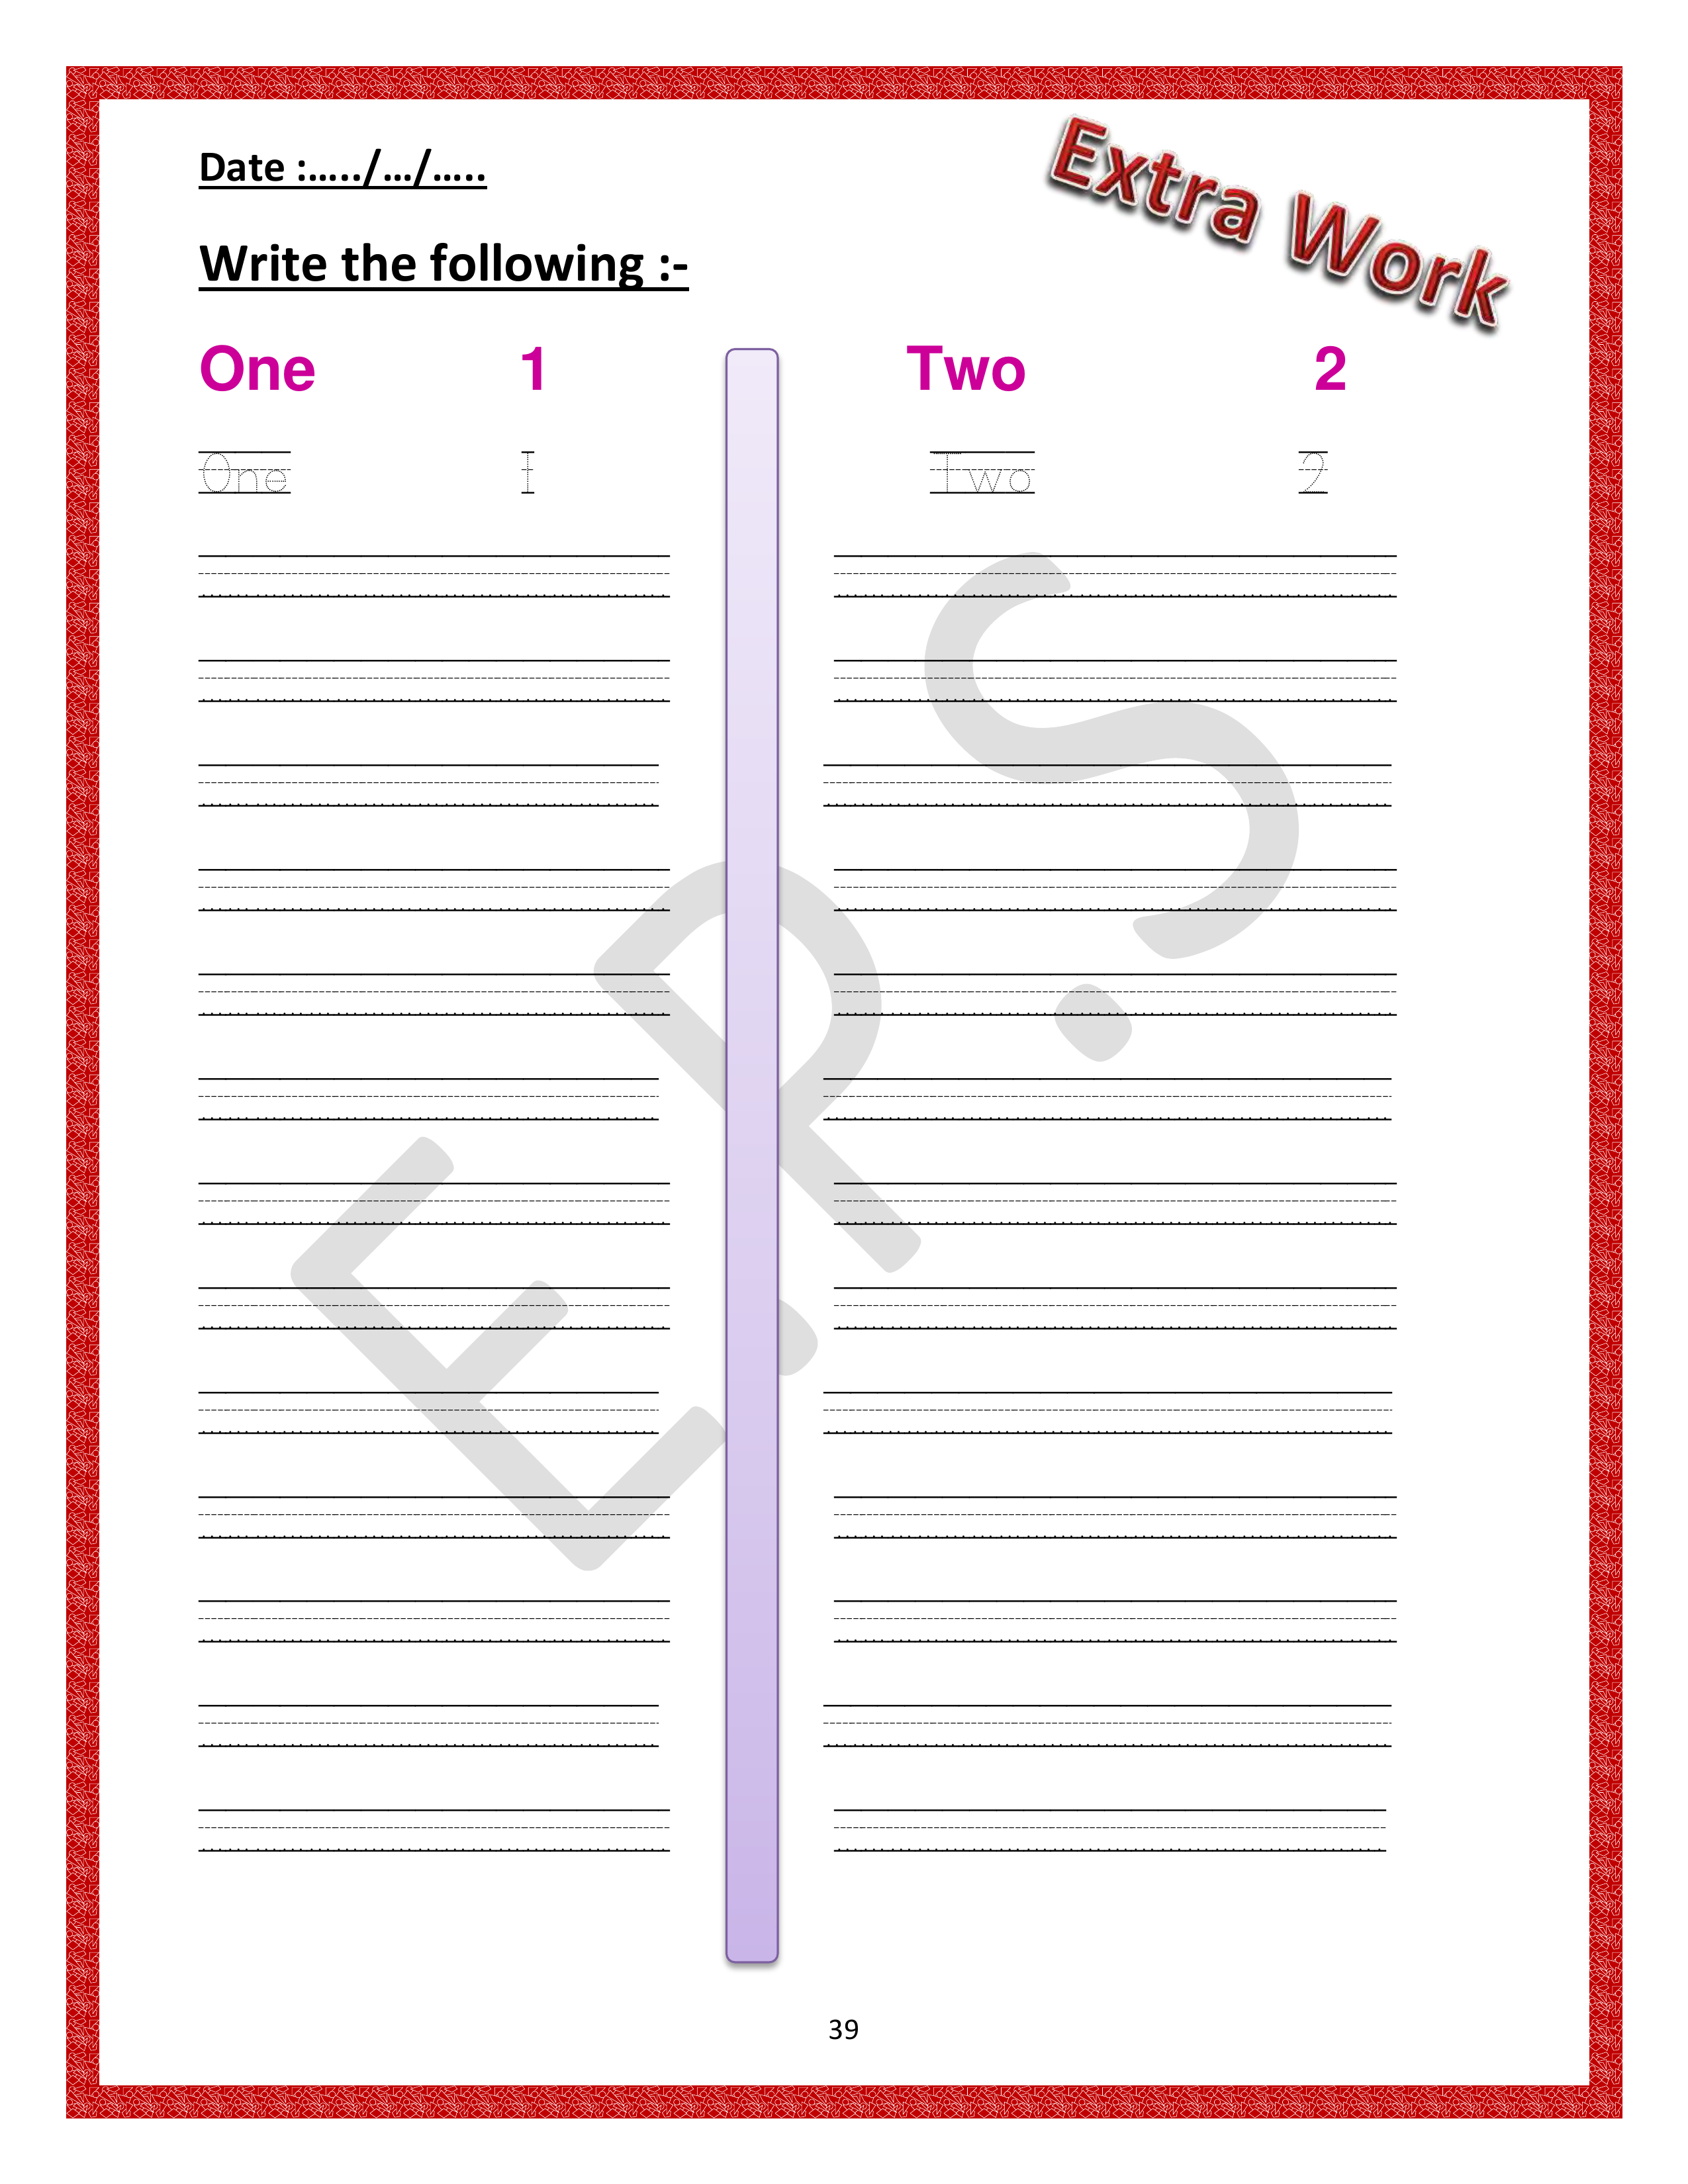 Date :...../.../.....
Extra Work
Write the following :-
One 1 Two 2
One 1 Two 2
E.R.S
39